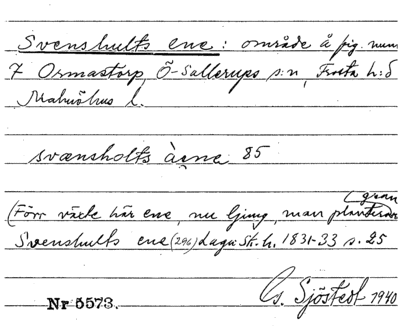 Svenshults ene: område å fig. num
7 Ormastorp, Ö-Sallerups s:n, Frosta h:d
Malmöhus l.
svænsholts àene 85
(gran
(Förr växte här ene, nu ljung, man planterar
Svenshults ene (296) Laga Sk. h. 1831-33 s. 25
Nr 5573.
Gs. Sjöstedt 1940